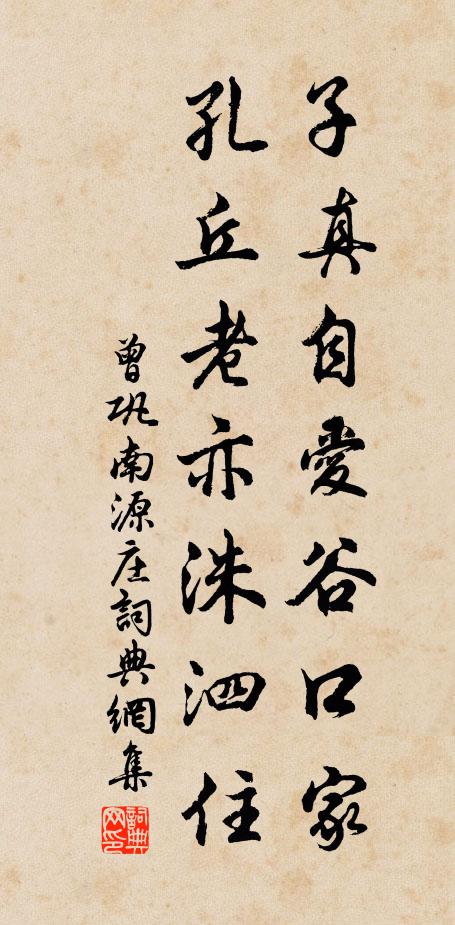 子真自愛谷口家
孔丘老亦洙泗住
曾巩南源庄詞典網集
詞典
网印